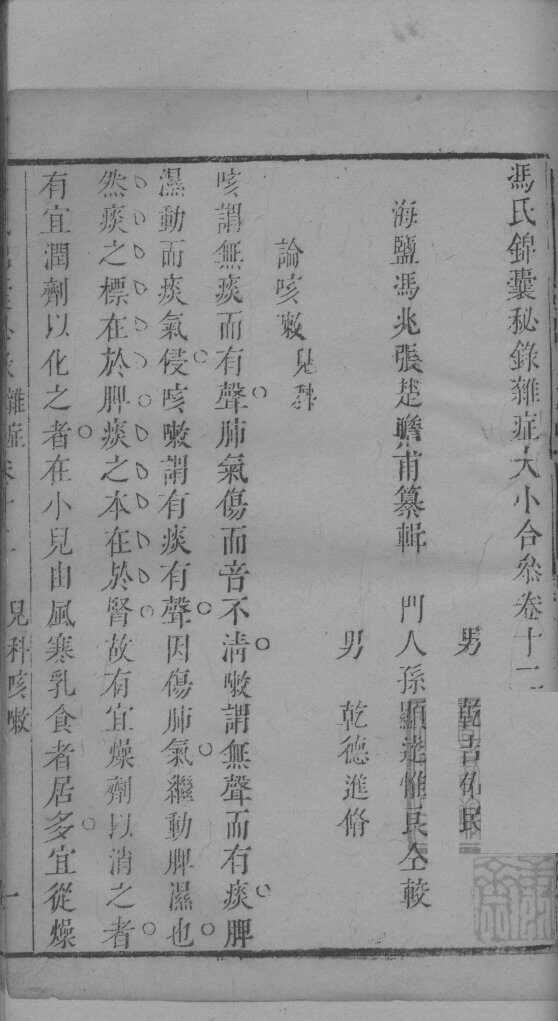 馮氏錦囊秘錄雜症大小合叅卷十二
男 乾吉佑民
海鹽馮兆張楚瞻甫纂輯 門人孫顯達惟良仝較
男 乾德進脩
論咳嗽兒科
咳謂無痰而有聲肺氣傷而音不清嗽謂無聲而有痰脾
濕動而痰氣侵咳嗽謂有痰有聲因傷肺氣繼動脾濕也
然痰之標在於脾痰之本在於腎故有宜燥劑以消之者
有宜潤劑以化之者在小兒由風寒乳食者居多宜從燥
雜症卷十二 兒科咳嗽 一